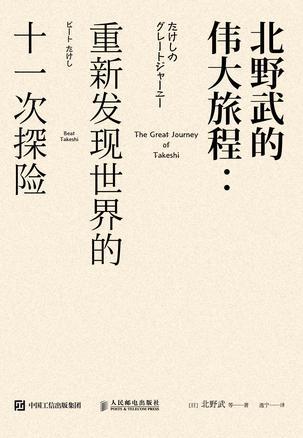 北野武的
伟大旅程：
たけしの
グレートジャーニー
The Great Journey
of
Takeshi
重新发现世界的
ビートたけし
Beat
Takeshi
十一次探险
中国工信出版集团
人民邮电出版社
POSTS & TELECOM PRESS
[日] 北野武 等一著 逸宁一译